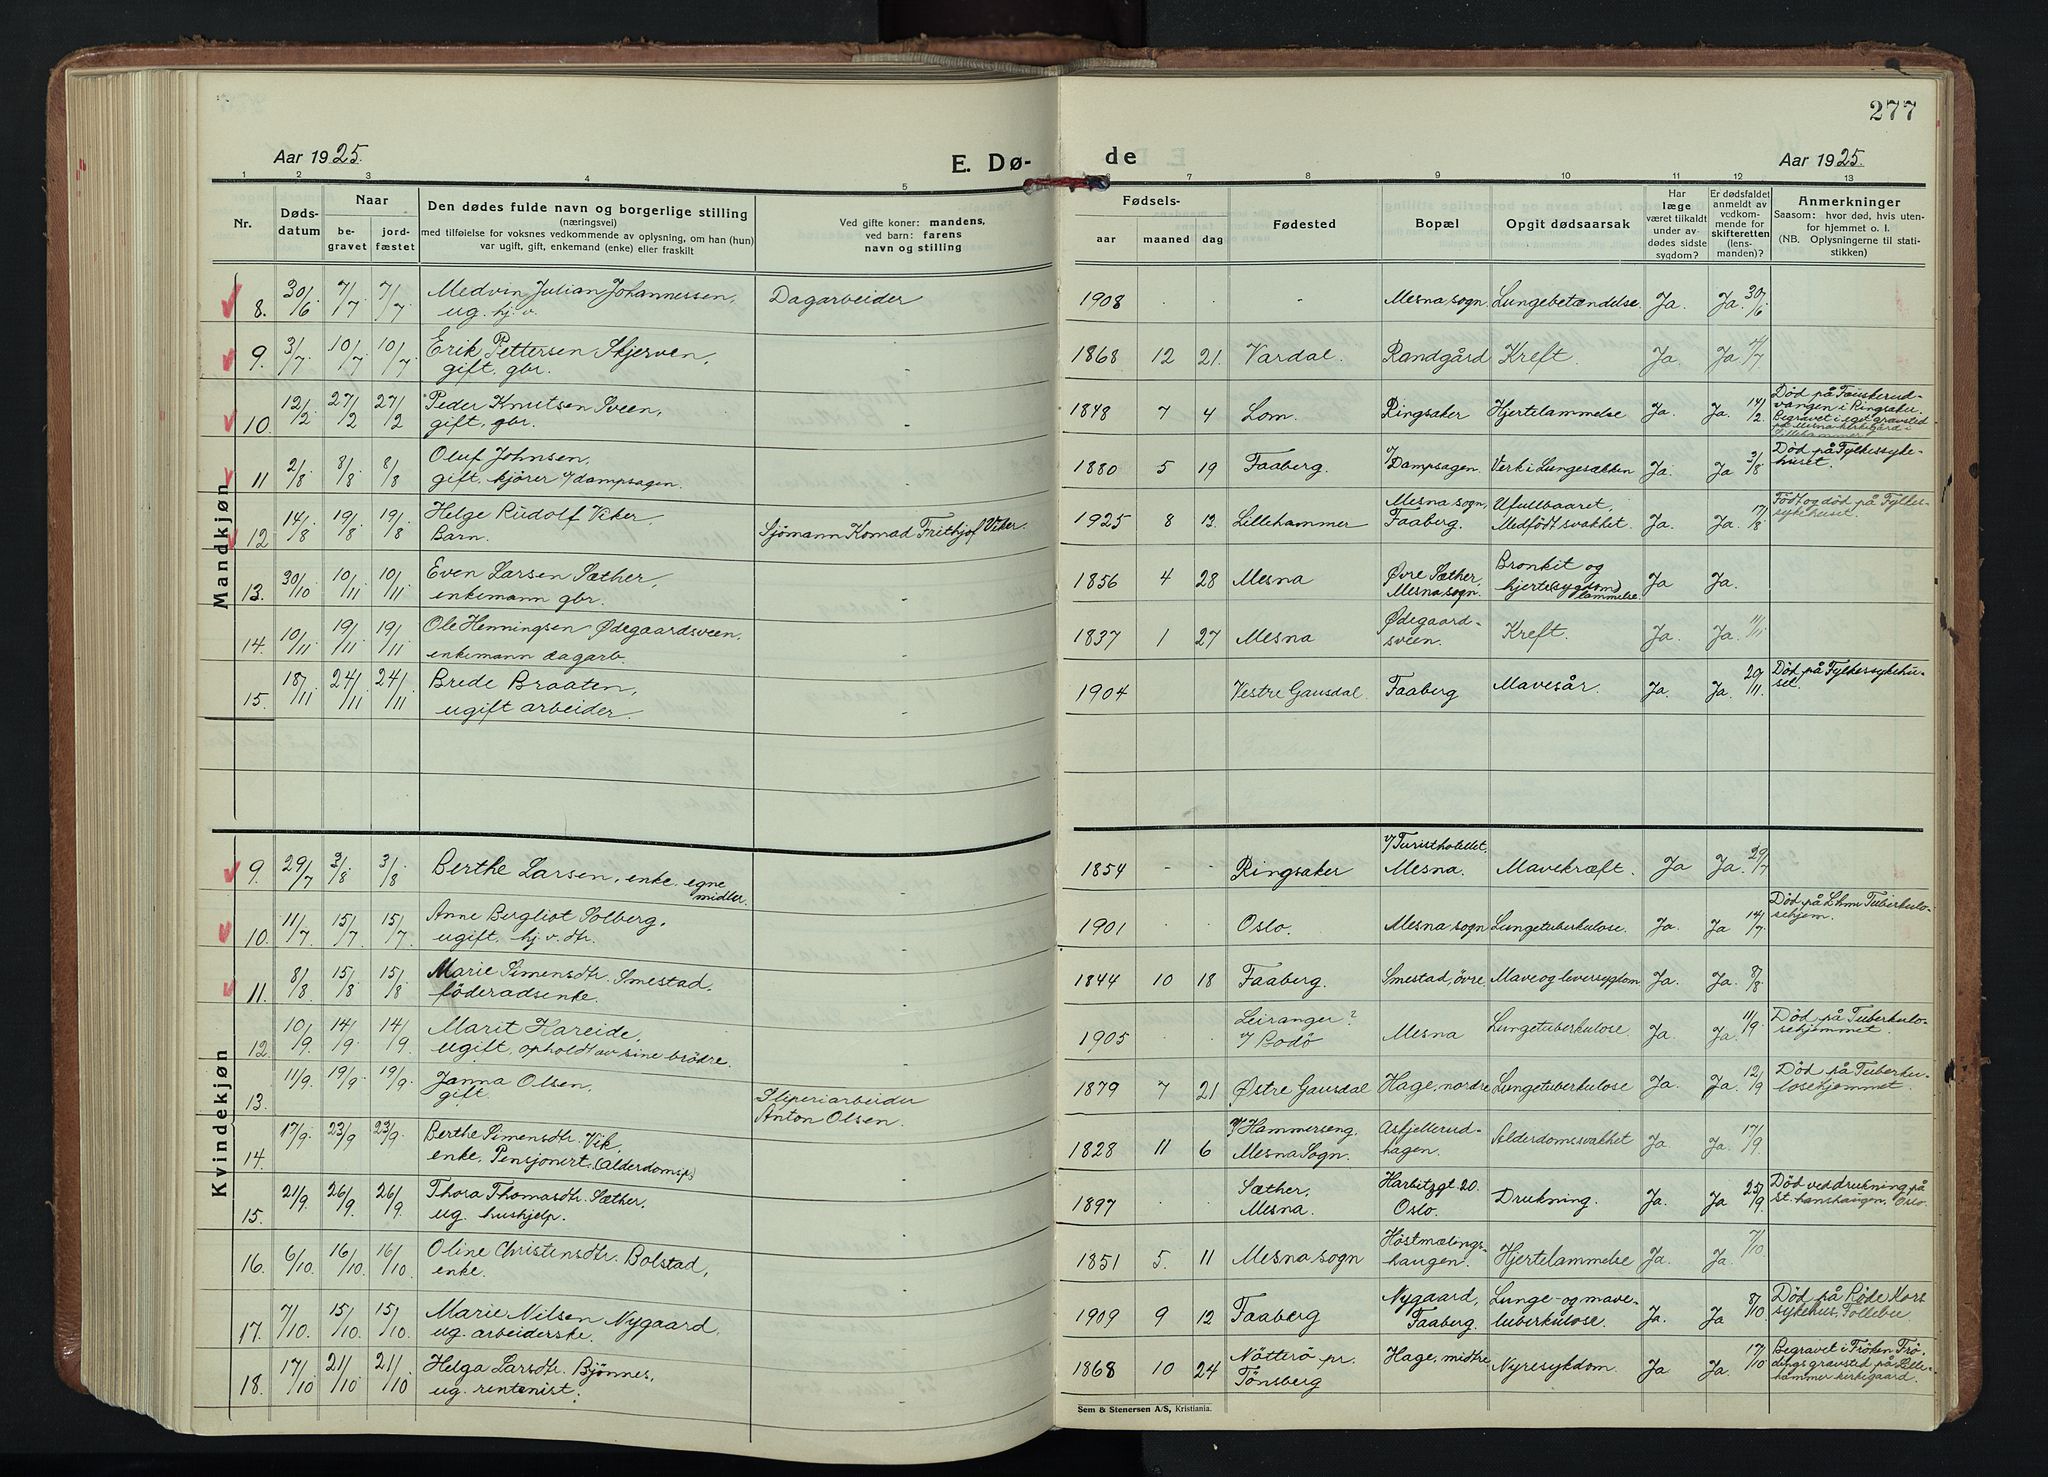 277
Aar 1925.
E. Dø-
de
Aar 1925.
1 2 3 4 5 6 7 8 9 10 11 12 13
Nr.
Døds-
datum
Naar
be-
gravet
jord-
fæstet
Den dødes fulde navn og borgerlige stilling
(næringsvei)
med tilføielse for voksnes vedkommende av oplysning, om han (hun)
var ugift, gift, enkemand (enke) eller fraskilt
Ved gifte koner: mandens,
ved barn: farens
navn og stilling
Fødsels-
aar
maaned
dag
Fødested
Bopæl
Opgit dødsaarsak
Har
læge
været tilkaldt
under av-
dødes sidste
sygdom?
Er dødsfaldet
anmeldt av
vedkom-
mende for
skifteretten
(lens-
manden)?
Anmerkninger
Saasom: hvor død, hvis uten-
for hjemmet o. l.
(NB. Oplysningerne til stati-
stikken)
Mandkjøn
8. 30/6 7/7 7/7 Medvin Julian Johannessen, Dagarbeider 1908 . . " Mesna sogn Lungebetændelse. Ja. Ja 30/6
ug. hj. v.
9. 3/7 10/7 10/7 Erik Pettersen Skjerven, 1868 12 21 Vardal. Randgård Kreft. Ja. Ja 4/7
gift, gbr.
10. 12/2 27/2 27/2 Peder Knutsen Sveen, 1848 7 4 Lom. Ringsaker Hjertelammelse Ja. Ja. 14/2 Død på Fauskerud-
vangen i Ringsaker.
Begravet i eget gravsted
på Mesna kirkegård i
Lillehammer.
gift, gbr.
11 2/8 8/8 8/8 Oluf Johnsen, 1880 5 19 Faaberg. v/ Dampsagen. Verk i Lungesækken Ja. Ja 3/8 Død på Fylkessyke-
huset.
gift, kjører v/ dampsagen.
12 14/8 19/8 19/8 Helge Rudolf Viker. Sjömann Konrad Frithjof Viker. 1925 8 13 Lillehammer Mesna sogn, Faaberg. Ufullbaaret, Medfödt svakhet. Ja. Ja. 17/8 Født og død på Fylkes-
sykehuset.
Barn.
13. 30/10 10/11 10/11 Even Larsen Sæther, 1856 4 28 Mesna Øvre Sæther, Mesna sogn. Bronkit og hjerte(sygdom) lammelse. Ja Ja.
enkemann gbr.
14. 10/11 19/11 19/11 Ole Henningsen Ødegaardsveen, 1837 1 27 Mesna Ødegaard-
sveen. Kreft. Ja. Ja. 11/11
enkemann dagarb.
15. 18/11 24/11 24/11 Brede Braaten, 1904 Vestre Gausdal. Faaberg Mavesår. Ja. Ja. 20/11. Død på Fylkessykehu-
set.
ugift arbeider.
Kvindekjøn
9. 29/7 3/8 3/8 Berthe Larsen, enke, egne midler. 1854 - - Ringsaker v/ Turisthotellet, Mesna. Mavekræft. Ja Ja. 29/7
10. 11/7 15/7 15/7 Anne Bergliot Solberg, 1901 . . Oslo. Mesna sogn Lungetuberkulose. Ja. Ja 14/7 Død på Lhmr Tuberkulo-
sehjem.
ugift, hj. v. dtr.
11. 8/8 15/8 15/8 Marie Simensdtr. Smestad, 1844 10 18 Faaberg. Smestad, övre Mave og leversygdom Ja. Ja. 8/8
föderadsenke.
12. 10/9 14/9 14/9 Marit Kareide, 1905 . . Leiranger? v/ Bodø Mesna Lungetuberkulose Ja. Ja. 11/9 Död på Tuberkulo-
sehjemmet.
ugift, opholdt av sine brödre.
13. 11/9. 19/9. 19/9. Janna Olsen, Sliperiarbeider Anton Olsen. 1879 7 21 Østre Gausdal Hage, nordre Lungetuberkulose Ja. Ja. 12/9 Død på Tuberku-
losehjemmet.
gift.
14. 17/9. 23/9 23/9. Berthe Simensdtr. Vik, 1828 11 6 v/ Hammerseng. Mesna Sogn. Askjellerud-
hagen. Alderdomssvakhet Ja. Ja. 17/9.
enke, Pensjonert (Alderdomsp.)
15. 21/9. 26/9. 26/9. Thora Thomasdtr. Sæther, 1897 . Sæther, Mesna. Harbitzgt 20. Oslo. Drukning. Ja. Ja 25/9. Död ved drukning på
st. hanshaugen, Oslo.
ug. hushjelp.
16. 6/10. 16/10. 16/10. Oline Christensdtr. Bolstad, 1851 5. 11 Mesna sogn Höstmælings-
haugen. Hjertelammelse Ja. Ja. 7/10.
enke.
17. 7/10. 15/10. 15/10. Marie Nilsen Nygaard, 1909 9 12 Faaberg Nygaard, Faaberg. Lunge- og mave-
tuberkulose. Ja. Ja 8/10. Död på Røde Kors
sykehus, Follebu.
ug. arbeiderske.
18. 17/10 21/10 21/10 Helga Larsdtr. Bjönnes, 1868 10 24 Nötterö pr. Tönsberg Hage, midtre Nyresykdom. Ja Ja. 17/10 Begravet i Fröken Frö-
dings gravsted på Lille-
hammer kirkegaard.
ug. rentenist.
Sem & Stenersen A/S, Kristiania.